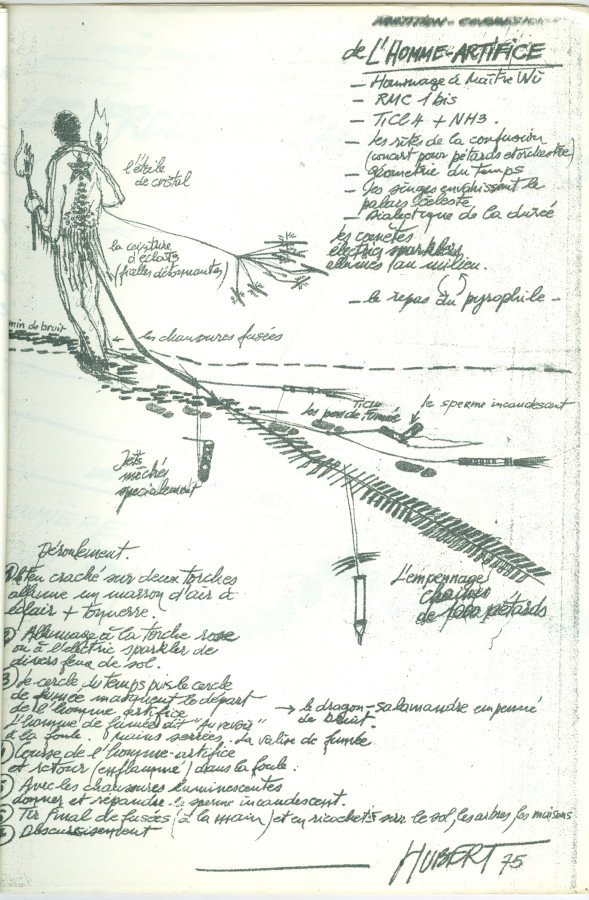 de L'HOMME-ARTIFICE
— Hommage à Maître Wù
— RMC 1 bis
— TiCL4 + NH3.
— les rites de la confusion
(concert pour pétards et orchestre)
— géométrie du temps
— les singes envahissent le
palais céleste
— Dialectique de la durée
les comètes
électric sparklers
allumés au milieu.
— le repas du pyrophile —
l'étoile
de cristal
la ceinture
d'éclats
(fialles détonnantes)
min de bruit
les chaussures fusées
les pots de fumée
le sperme incandescent
Jets
mêchés
spécialement
L'empennage
de pétards
Déroulement
1 feu craché sur deux torches
allume un marron d'air à
éclair + tonnerre.
2 Allumage à la torche rose
ou à l'électric sparkler de
divers feux de sol.
3 le cercle du temps puis le cercle
de fumée masquent le départ
de l'homme artifice
L'homme de fumée dit "Au revoir"
à la foule. mains serrées. La valise de fumée
→ le dragon-salamandre empenné
de bruit.
4 Course de l'homme-artifice
et retour (enflammé) dans la foule.
5 Avec les chaussures luminescentes
donner et répandre le sperme incandescent.
Tir final de fusées (à la main) et en ricochets sur le sol, les arbres, les maisons
Obscurcissement
HUBERT 75